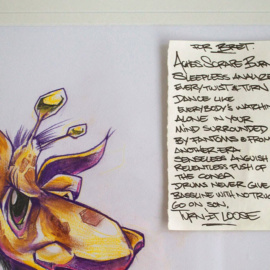 FOR BRET.
ACHES SCRAPE BURN
SLEEPLESS ANALYZE
EVERY TWIST & TURN
DANCE LIKE
EVERYBODY'S WATCHING
ALONE IN YOUR
MIND SURROUNDED
BY FANTOMS & FROM
ANOTHER ERA
SENSELESS ANGUISH
RELENTLESS PUSH OF
THE CONGA
DRUMS NEVER GIVE
BASSLINE WITH NO TRUC
GO ON SON,
TURN IT LOOSE